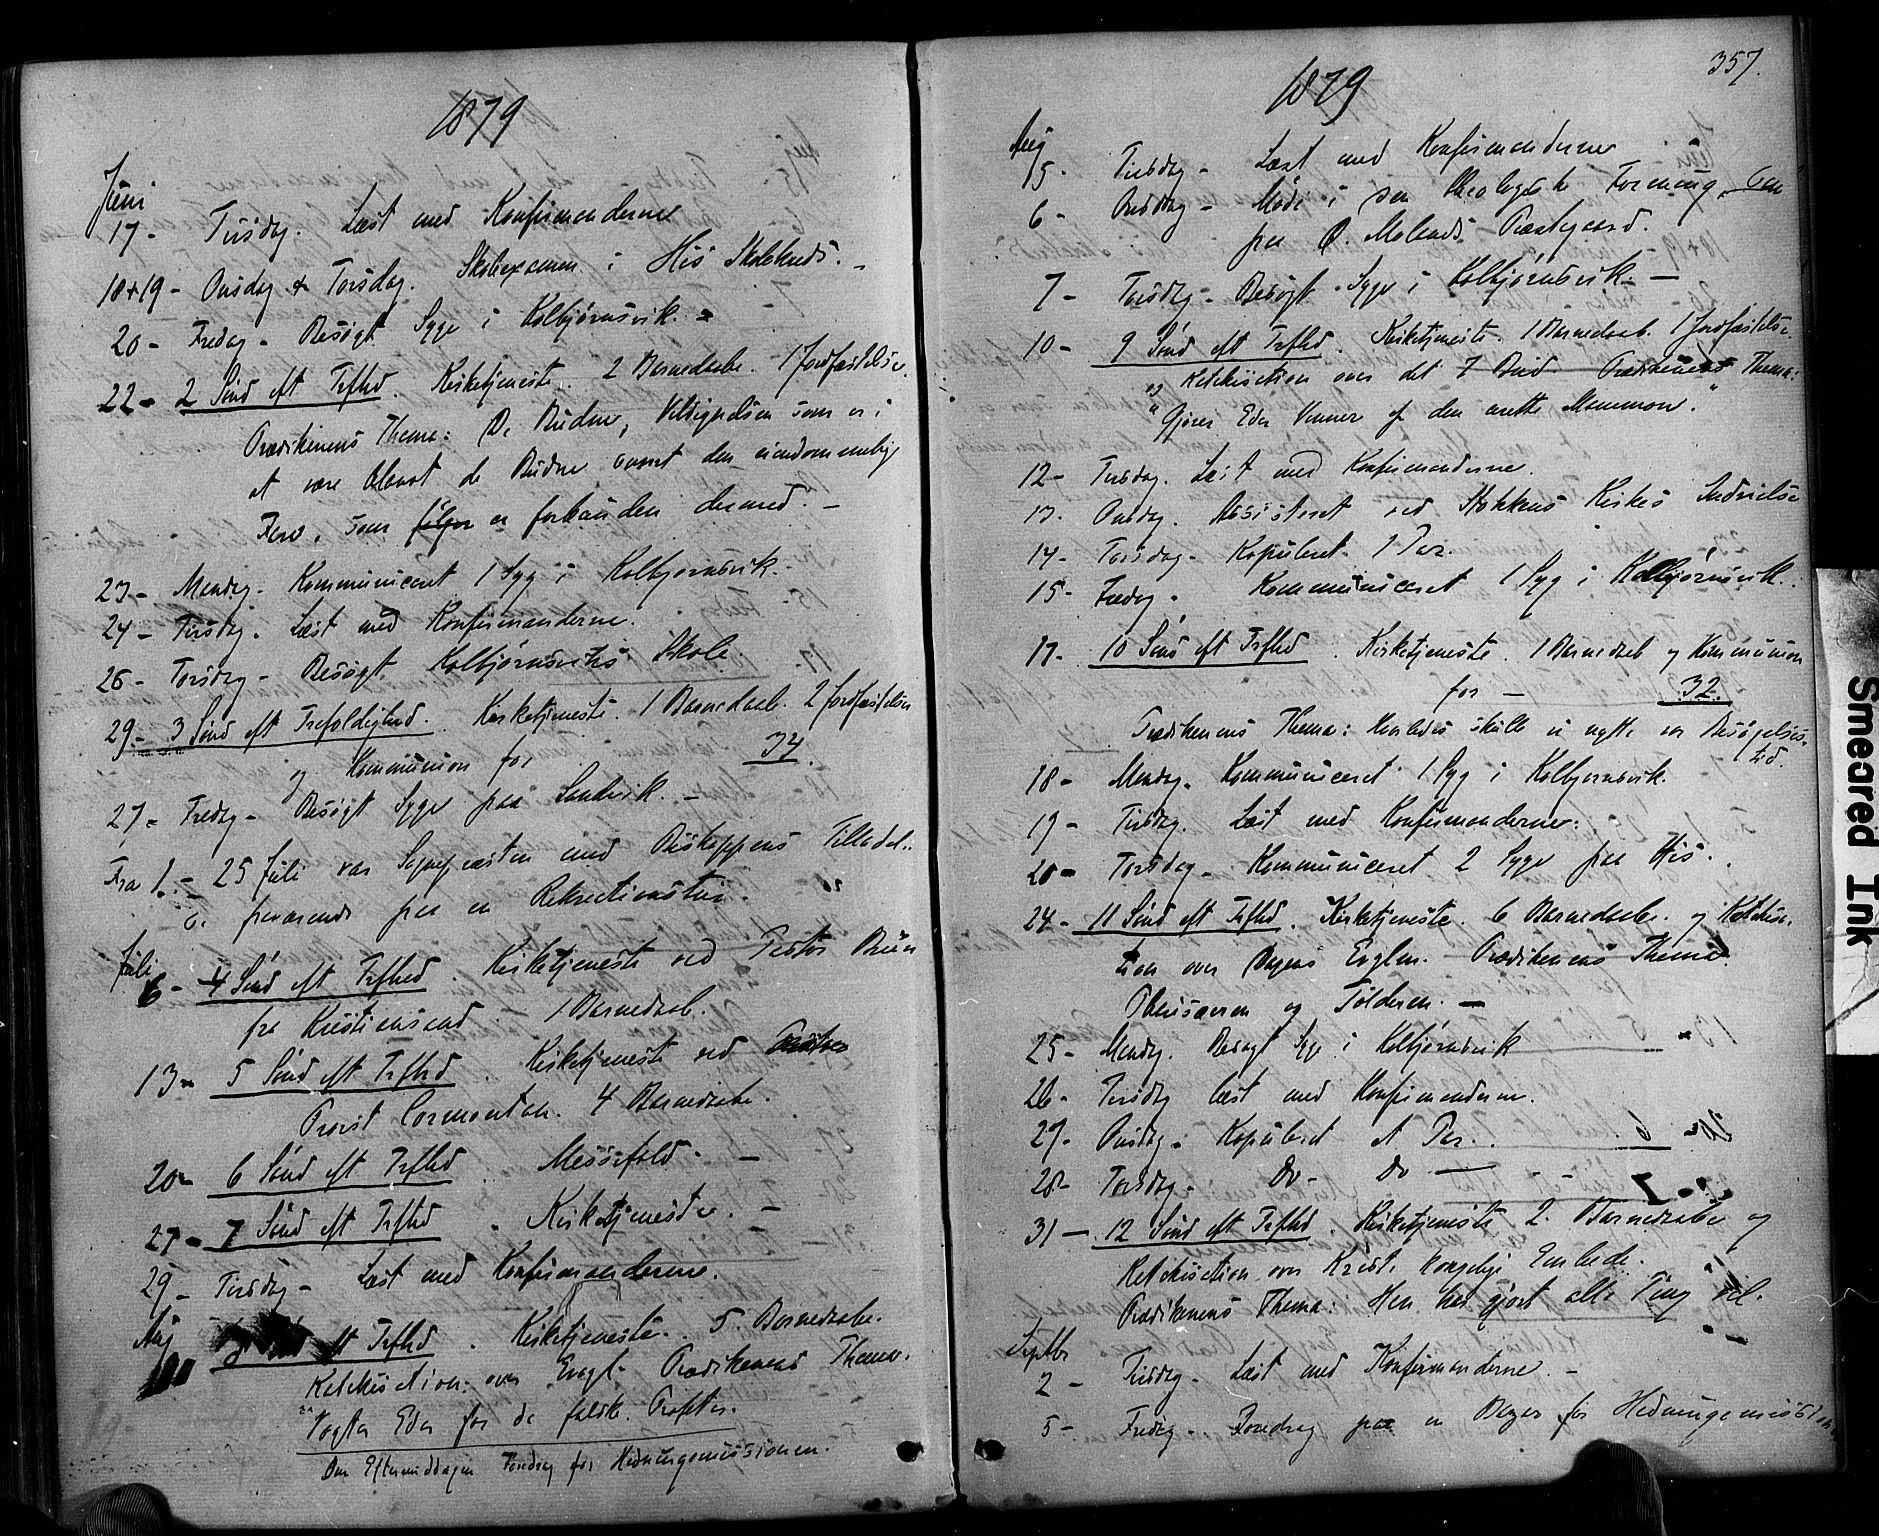 1879
Juni
17- Tirsdag. Læst med Konfirmanderne
18+19- Onsdag & Torsdag. Skolexamen i His Skolekreds.
20- Fredag- Besøgt Syge i Kolbjørnsvik.
22- 2 Sønd eft Trfthd. Kirketjeneste. 2 Barnedaabe. 1 Jordfæstelse.
Prædikenens Thema: De Budne, Velsignelsen som er i
at være blandt de Budne samt den eiendommelige
Fare, som følger er forbunden dermed.-
23- Mandag. Kommuniceret 1 Syg i Kolbjørnsvik.
24- Tirsdag. Læst med Konfirmanderne.
26- Torsdag- Besøgt Kolbjørnsviks Skole.
29- 3 Sønd eft Trefoldighed. Kirketjeneste. 1 Barnedaab. 2 Jordfæstelser
og Kommunion for 34.
27- Fredag- Besøgt Syge paa Sandvik.-
Fra 1.- 25 Juli var Sognepræsten med Biskoppens Tilladel-
se fraværende paa en Rekreationstur.
Juli
6- 4 Sønd eft Trfthd. Kirketjeneste ved Pastor Bruun
fra Kristiansand. 1 Barnedaab.
13- 5 Sønd eft Trfthd. Kirketjeneste ved
Provst 4 Barnedaabe.
20- 6 Sønd eft Trfthd. Messefald.-
27- 7 Sønd eft Trfthd. Kirketjeneste.-
29- Tirsdag- Læst med Konfirmanderne.
Aug
eft Trfthd. Kirketjeneste. 5 Barnedaabe.
Katekisation over Evgl. Prædikenens Thema.
Vogter Eder for de falske Profeter.
Om Eftermiddagen Foredrag for Hedningemissionen.
357.
1879
Aug
5. Tirsdag- Læst med Konfirmanderne
6- Onsdag- Møde i den theologiske Forening
paa Ø. Molands Præstegaard.
7- Torsdag- Besøgt Syge i Kolbjørnsvik-
10- 9 Sønd eft Trfthd. Kirketjeneste. 1 Barnedaab. 1 Jordfæstelse
og Katekisation over det 7 Bud. Prædikenens Thema:
"Gjører Eder Venner af den urette Mammon."
12- Tirsdag. Læst med Konfirmanderne.
13. Onsdag. Assisteret ved Stokkens Kirkes Indvielse
14- Torsdag- Kopuleret 1 Par.
15- Fredag. Kommuniceret 1 Syg i Kolbjørnsvik.
17- 10 Sønd eft Trfthd. Kirketjeneste. 1 Barnedaab og Kommunion
for - 32.
Prædikenens Thema: Hvorledes skulle vi nytte vor Besøgelses-
tid.
18- Mandag. Kommuniceret 1 Syg i Kolbjørnsvik.
19- Tirsdag. Læst med Konfirmanderne.
20- Torsdag- Kommuniceret 2 Syge paa His.
24- 11 Sønd eft Trfthd. Kirketjeneste. 6 Barnedaabe. og Katekisa-
tion over Dagens Evglm. Prædikenens Thema
Pharisæeren og Tolderen.-
25- Mandag. Besøgt Syge i Kolbjørnsvik
26- Tirsdag læst med Konfirmanderne.
27- Onsdag- Kopuleret et Par.
28- Torsdag- Do- Do-
31- 12 Sønd eft Trfthd Kirketjeneste 2. Barnedaabe og
Katekisation over Kristi kongelige Embede.
Prædikenens Thema: Han har gjort alle Ting vel.
Septbr
2- Tirsdag- Læst med Konfirmanderne.-
5- Fredag- Foredrag paa en Bazar for Hedningemissionen
Smeared Ink